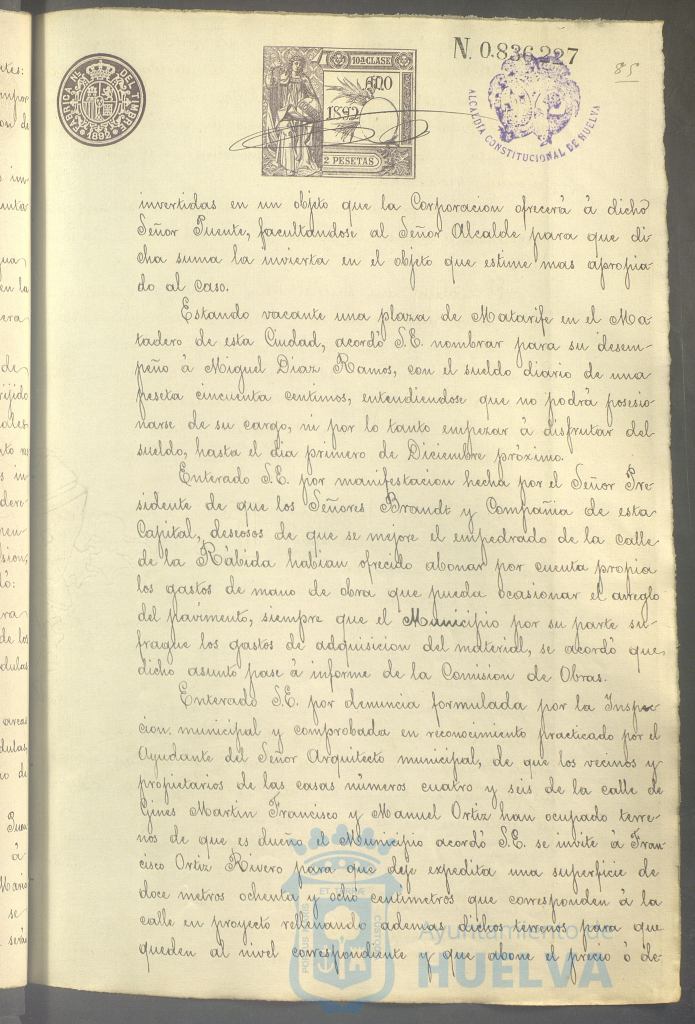 FABRICA NL. DEL TIMBRE
1892
10ª CLASE
1892
2 PESETAS
N. 0.836,227
ALCALDIA CONSTITUCIONAL DE HUELVA
85
invertidas en un objeto que la Corporacion ofrecerá á dicho
Señor Puente, facultandose al Señor Alcalde para que di-
cha suma la invierta en el objeto que estime mas apropia-
do al caso.
Estando vacante una plaza de Matarife en el Ma-
tadero de esta Ciudad, acordó S.E. nombrar para su desem-
peño á Miguel Diaz Ramos, con el sueldo diario de una
peseta cincuenta centimos, entendiendose que no podrá posesio-
narse de su cargo, ni por lo tanto empezar á disfrutar del
sueldo, hasta el dia primero de Diciembre próximo.
Enterado S.E. por manifestacion hecha por el Señor Pre-
sidente de que los Señores Brandt y Compañia de esta
Capital, deseosos de que se mejore el empedrado de la calle
de la Rábida habian ofrecido abonar por cuenta propia
los gastos de mano de obra que pueda ocasionar el arreglo
del pavimento, siempre que el Municipio por su parte su-
fragüe los gastos de adquisicion del material, se acordó que
dicho asunto pase á informe de la Comision de Obras.
Enterado S.E. por denuncia formulada por la Inspec-
cion municipal y comprobada en reconocimiento practicado por el
Ayudante del Señor Arquitecto municipal, de que los vecinos y
propietarios de las casas números cuatro y seis de la calle de
Gines Martin Francisco y Manuel Ortiz han ocupado terre-
nos de que es dueño el Municipio acordó S.E. se invite á Fran-
cisco Ortiz Rivero para que deje expedita una superficie de
doce metros ochenta y ocho centimetros que corresponden á la
calle en proyecto rellenando ademas dichos terrenos para que
queden al nivel correspondiente y que abone el precio ó de-
Ayuntamiento de
HUELVA